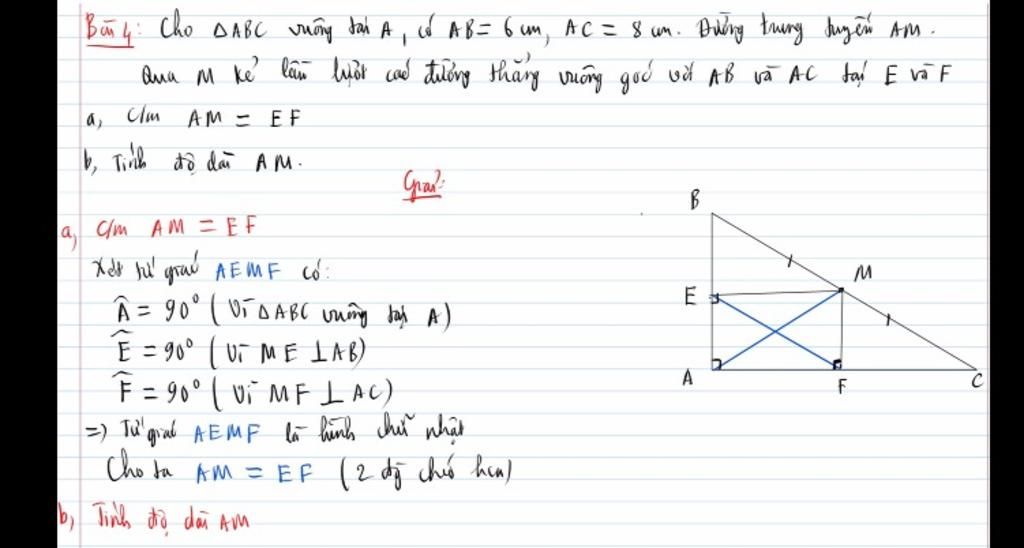 Bài 4: Cho ΔABC vuông tại A, có AB = 6 cm, AC = 8 cm. Đường trung tuyến AM.
Qua M kẻ lần lượt các đường thẳng vuông góc với AB và AC tại E và F
a, c/m AM = EF
b, Tính độ dài AM.
Giải:
a, c/m AM = EF
Xét tứ giác AEMF có:
Â = 90° (Vì ΔABC vuông tại A)
Ê = 90° (Vì ME ⊥ AB)
F̂ = 90° (Vì MF ⊥ AC)
=> Tứ giác AEMF là hình chữ nhật
Cho ta AM = EF (2 đg chéo hcn)
b, Tính độ dài AM
B
M
E
A
F
C